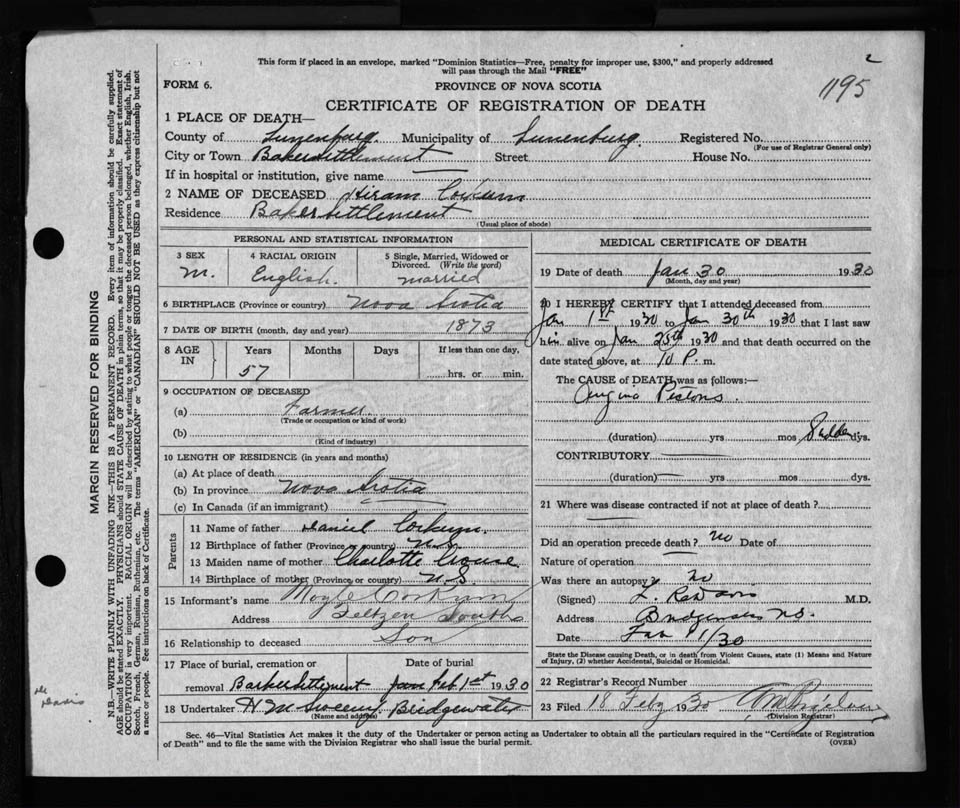 This form if placed in an envelope, marked "Dominion Statistics—Free, penalty for improper use, $300," and properly addressed
will pass through the Mail "FREE"
2
1195
FORM 6.
PROVINCE OF NOVA SCOTIA
CERTIFICATE OF REGISTRATION OF DEATH
1 PLACE OF DEATH—
County of Lunenburg Municipality of Lunenburg Registered No.
(For use of Registrar General only)
City or Town Baker Settlement Street House No.
If in hospital or institution, give name
2 NAME OF DECEASED Hiram Corkum
Residence Baker Settlement
(Usual place of abode)
PERSONAL AND STATISTICAL INFORMATION
3 SEX 4 RACIAL ORIGIN 5 Single, Married, Widowed or
Divorced. (Write the word)
M. English. married
6 BIRTHPLACE (Province or country) Nova Scotia
7 DATE OF BIRTH (month, day and year) 1873
8 AGE IN Years Months Days If less than one day,
57 hrs. or min.
9 OCCUPATION OF DECEASED
(a) Farmer
(Trade or occupation or kind of work)
(b)
(Kind of industry)
10 LENGTH OF RESIDENCE (in years and months)
(a) At place of death
(b) In province Nova Scotia
(c) In Canada (if an immigrant)
Parents
11 Name of father Daniel Corkum.
12 Birthplace of father (Province or country) N.S.
13 Maiden name of mother Charlotte Crouse
14 Birthplace of mother (Province or country) N.S.
15 Informant's name Moyle Corkum
Address South
16 Relationship to deceased Son
17 Place of burial, cremation or Date of burial
removal Barker Settlement Jan Feb. 1st 1930
18 Undertaker H M Sweeny Bridgewater
(Name and address)
MEDICAL CERTIFICATE OF DEATH
19 Date of death Jan 30 1930
(Month, day and year)
20 I HEREBY CERTIFY that I attended deceased from
Jan 1st 1930 to Jan 30th 1930 that I last saw
him alive on Jan 25th 1930 and that death occurred on the
date stated above, at 10 P. m.
The CAUSE of DEATH was as follows:—
Angina Pectoris.
(duration) yrs mos Sudden dys.
CONTRIBUTORY
(duration) yrs mos. dys.
21 Where was disease contracted if not at place of death?
Did an operation precede death? no Date of
Nature of operation
Was there an autopsy? no
(Signed) M.D.
Address Bridgewater N.S.
Date Feb 1/30
State the Disease causing Death, or in death from Violent Causes, state (1) Means and Nature
of Injury, (2) whether Accidental, Suicidal or Homicidal.
22 Registrar's Record Number
23 Filed 18 Feby 1930
(Division Registrar)
Sec. 46—Vital Statistics Act makes it the duty of the Undertaker or person acting as Undertaker to obtain all the particulars required in the "Certificate of Registration
of Death" and to file the same with the Division Registrar who shall issue the burial permit. (OVER)
MARGIN RESERVED FOR BINDING
N.B.—WRITE PLAINLY WITH UNFADING INK—THIS IS A PERMANENT RECORD. Every item of information should be carefully supplied.
AGE should be stated EXACTLY. PHYSICIANS should STATE CAUSE OF DEATH in plain terms, so that it may be properly classified. Exact statement of
OCCUPATION is very important. RACIAL ORIGIN will be described by stating to what people or tongue the deceased person belonged, whether English, Irish,
Scotch, French, German, Russian, Ruthenian, etc. The terms "AMERICAN" or "CANADIAN" SHOULD NOT BE USED as they express citizenship but not
a race or people. See instructions on back of Certificate.